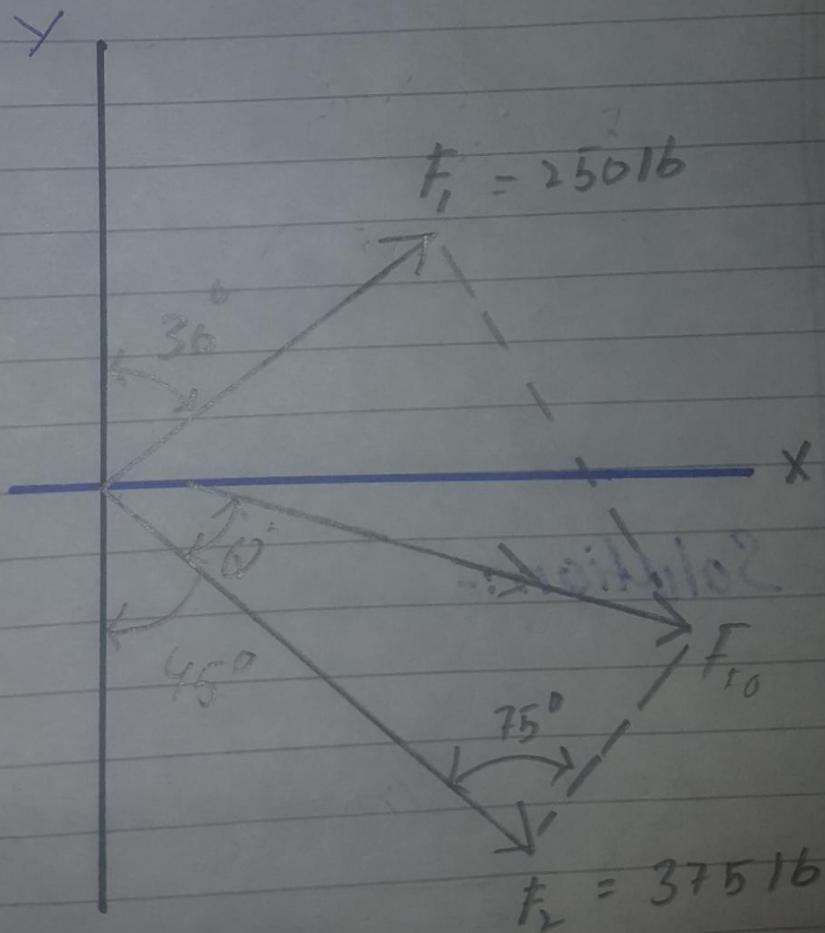 Y
F₁ = 250 lb
30°
X
45°
75°
F₂ = 375 lb